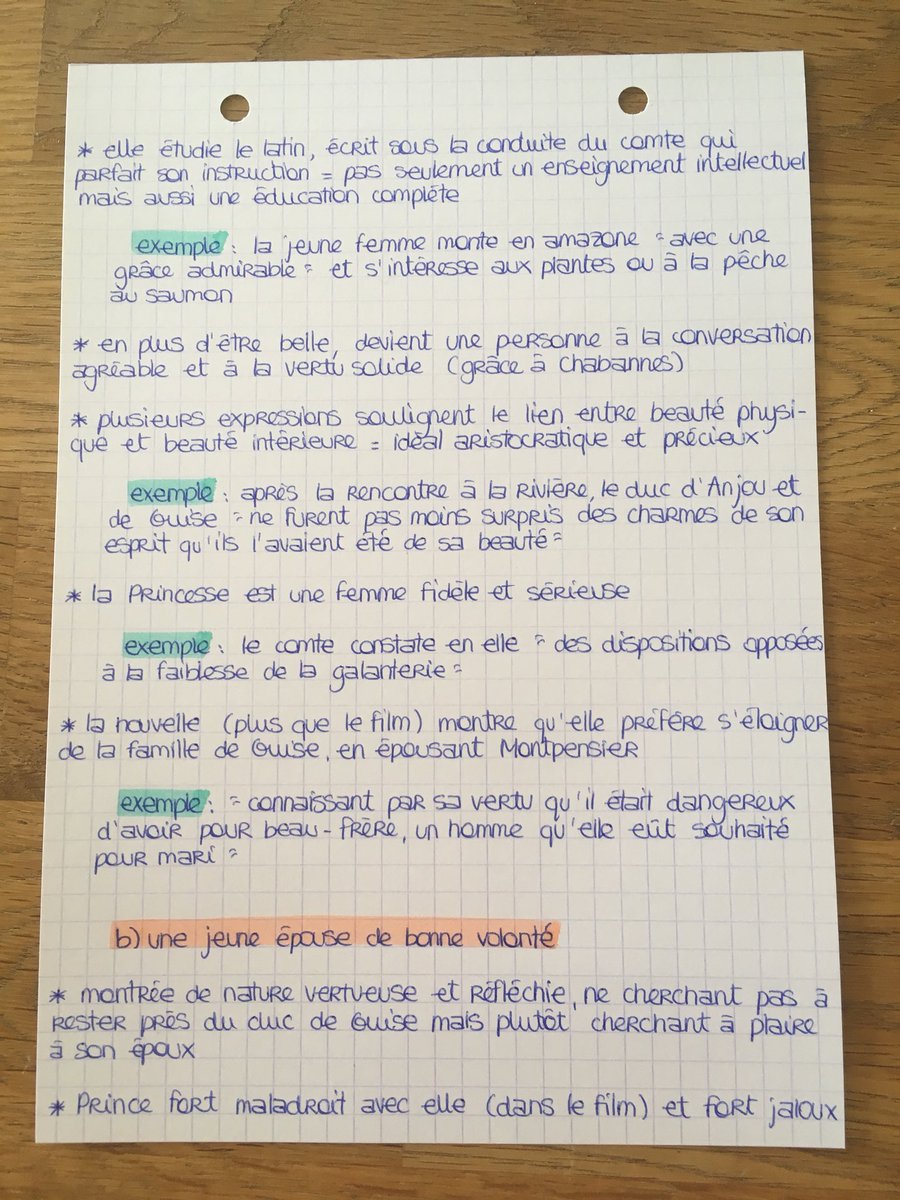 * elle étudie le latin, écrit sous la conduite du comte qui
parfait son instruction = pas seulement un enseignement intellectuel
mais aussi une éducation complète
exemple : la jeune femme monte en amazone " avec une
grâce admirable " et s'intéresse aux plantes ou à la pêche
au saumon
* en plus d'être belle, devient une personne à la conversation
agréable et à la vertu solide (grâce à Chabannes)
* plusieurs expressions soulignent le lien entre beauté physi-
que et beauté intérieure = idéal aristocratique et précieux
exemple : après la rencontre à la rivière, le duc d'Anjou et
de Guise " ne furent pas moins surpris des charmes de son
esprit qu'ils l'avaient été de sa beauté "
* la Princesse est une femme fidèle et sérieuse
exemple : le comte constate en elle " des dispositions opposées
à la faiblesse de la galanterie "
* la nouvelle (plus que le film) montre qu'elle préfère s'éloigner
de la famille de Guise, en épousant Montpensier
exemple : " connaissant par sa vertu qu'il était dangereux
d'avoir pour beau-frère, un homme qu'elle eût souhaité
pour mari "
b) une jeune épouse de bonne volonté
* montrée de nature vertueuse et réfléchie, ne cherchant pas à
rester près du duc de Guise mais plutôt cherchant à plaire
à son époux
* Prince fort maladroit avec elle (dans le film) et fort jaloux